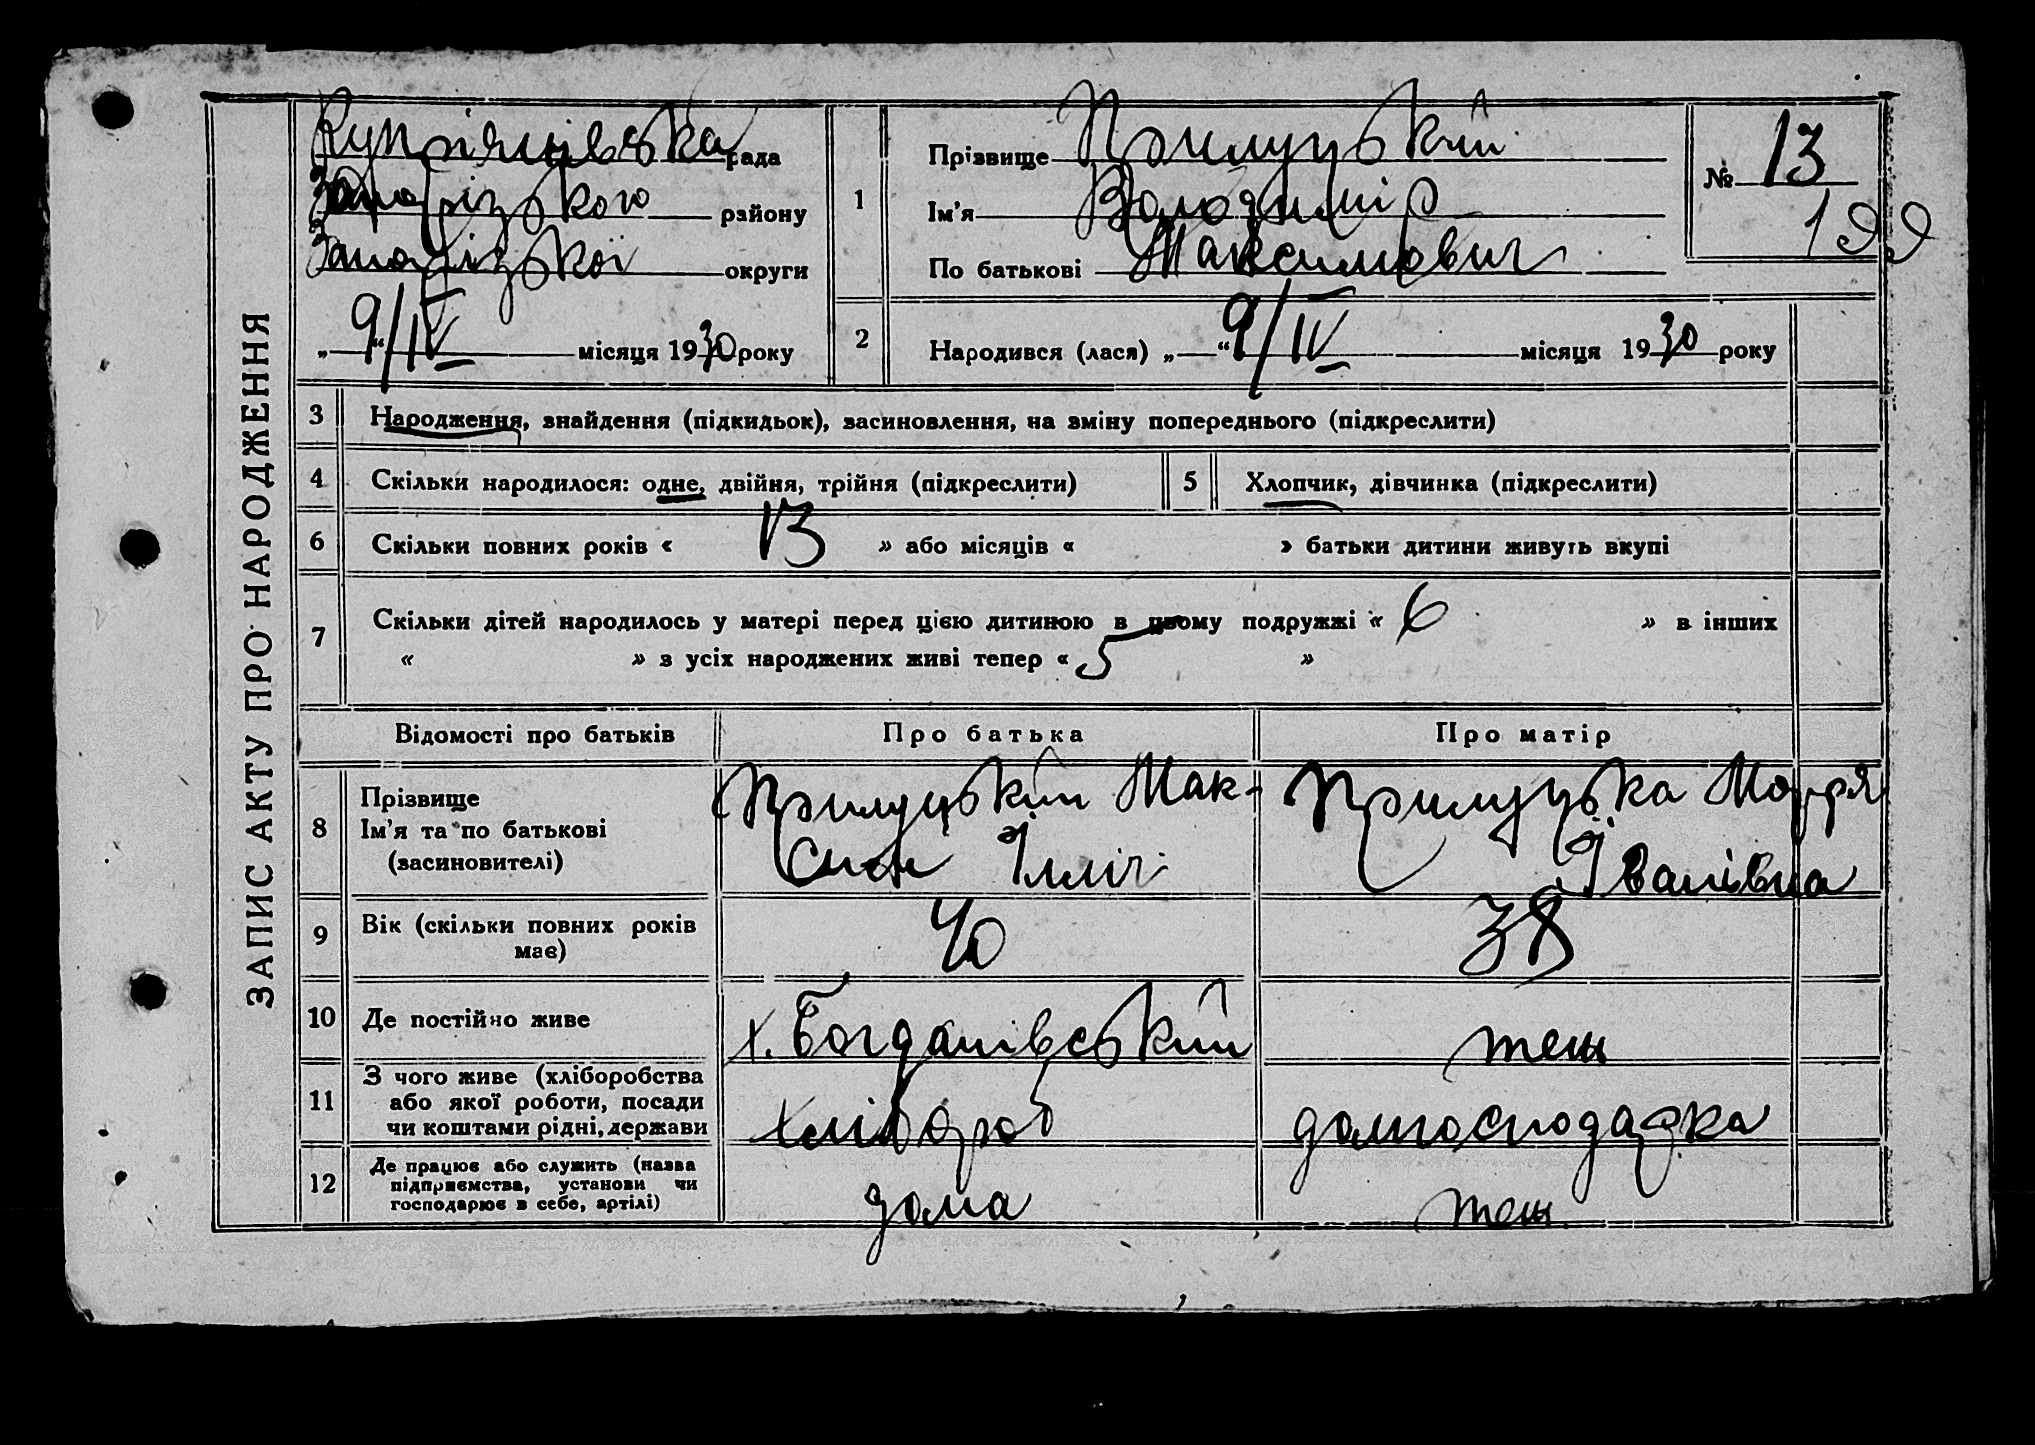 ЗАПИС АКТУ ПРО НАРОДЖЕННЯ
Купріянівська рада
Запорізького району
Запорізької округи
„ 9/IV “ місяця 1930 року
1
Прізвище Прилуцький
Ім'я Володимір
По батькові Максимович
№ 13
199
2
Народився (лася) „ “ 9/IV місяця 1930 року
3 Народження, знайдення (підкидьок), засиновлення, на зміну попереднього (підкреслити)
4 Скільки народилося: одне, двійня, трійня (підкреслити)
5 Хлопчик, дівчинка (підкреслити)
6 Скільки повних років « 13 » або місяців « » батьки дитини живуть вкупі
7 Скільки дітей народилось у матері перед цією дитиною в цьому подружжі « 6 » в інших
« » з усіх народжених живі тепер « 5 »
Відомості про батьків Про батька Про матір
8
Прізвище
Ім'я та по батькові
(засиновителі)
Прилуцький Мак-
сим Ілліч
Прилуцька Марря
Іванівна
9
Вік (скільки повних років
має)
40
38
10 Де постійно живе х. Богданівський теж
11
З чого живе (хліборобства
або якої роботи, посади
чи коштами рідні, держави
хлібороб
домгосподарка
12
Де працює або служить (назва
підприємства, установи чи
господарює в себе, артілі)
дома
теж